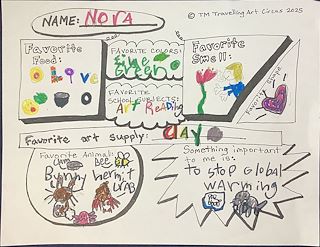 NAME: NORA
© TM Travelling Art Circus 2025
Favorite Food:
OLIVE
FAVORITE COLORS:
BLUE
GREEN
Favorite Smell:
FAVORITE SCHOOL SUBJECTS:
Art Reading
Favorite Shape
Favorite art supply: clay
Favorite Animal:
Bunny hermit
CRAB
Something important
to me is:
to stop Global
WARMING